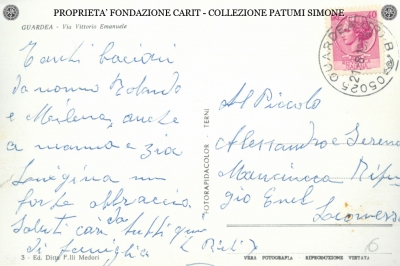 PROPRIETA' FONDAZIONE CARIT - COLLEZIONE PATUMI SIMONE
GUARDEA - Via Vittorio Emanuele
Tanti bacioni
da nonno Rolando
e Marlena, anche
a mamma e zia
un
forte abbraccio
Saluti cari da tutti
di famiglia
3 - Ed. Ditta F.lli Medori
FOTORAPIDACOLOR - TERNI
05025 GUARDEA
40
Al Piccolo
Alessandro e Serena
Mancinoca Rifu
gio Enel
(Rieti)
VERA FOTOGRAFIA RIPRODUZIONE VIETATA